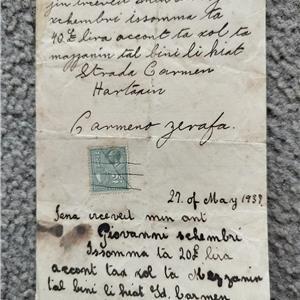 jin irceveit
xchembri issomma ta
40£ lira accont ta xol ta
mazzanin tal bini li hiat
Strada Carmen
Hartaxin
Carmeno Zerafa.
27. of May 1937
Jena irceveit min ant
Giovanni schembri
Issomma ta 20£ lira
accont tax xol ta Mezzanin
tal bini li hiat Sd. Carmen